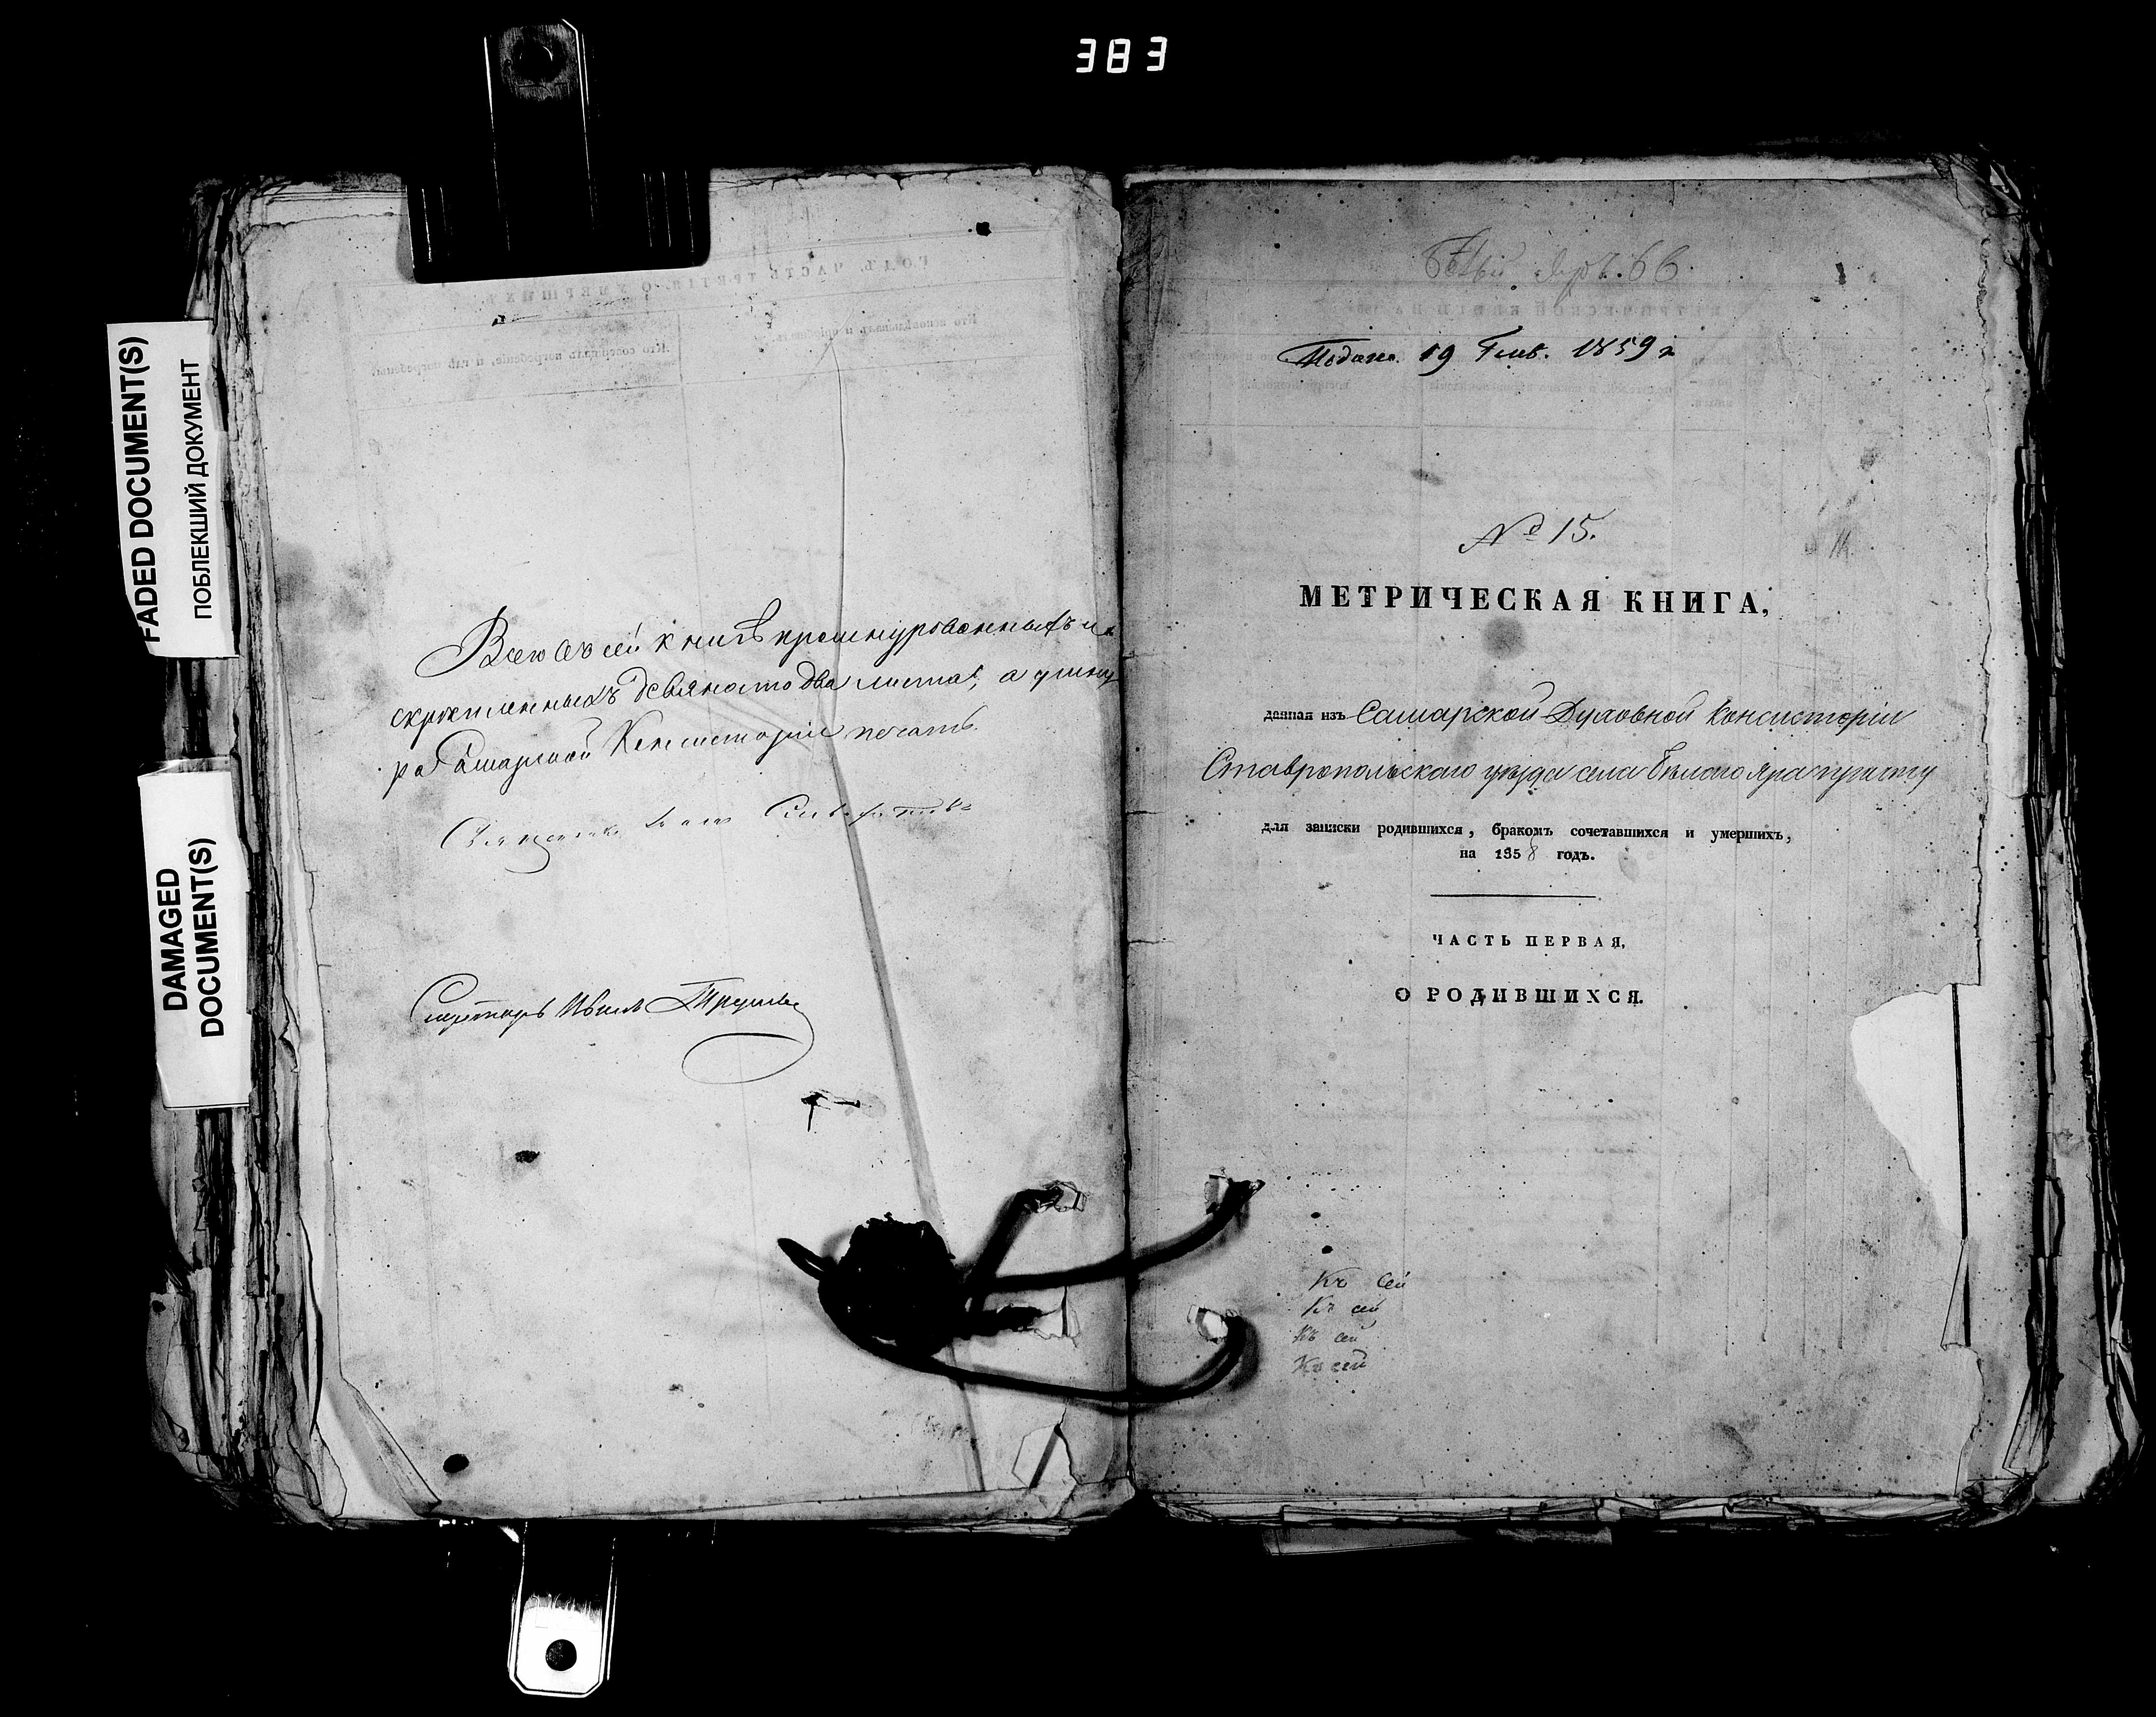 383
FADED DOCUMENT(S)
ПОБЛЕКШИЙ ДОКУМЕНТ
DAMAGED
DOCUMENT(S)
Всего въ сей книгѣ прошнурованныхъ и
скрѣпленныхъ девяносто два листа, а у шну
ра Самарской Консисторіи печать.
Секретарь Иванъ
Бѣлый Яръ. 66.
Подана 19 Генв. 1859 г
№ 15.
МЕТРИЧЕСКАЯ КНИГА,
данная изъ Самарской Духовной Консисторіи
Ставропольскаго уѣзда села Бѣлаго Яра причту
для записки родившихся, бракомъ сочетавшихся и умершихъ,
на 1858 годъ.
ЧАСТЬ ПЕРВАЯ,
О РОДИВШИХСЯ.
Къ сей
Къ сей
Къ сей
Къ сей